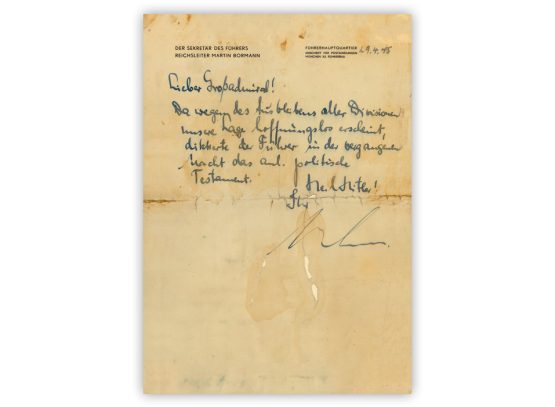 DER SEKRETÄR DES FÜHRERS
REICHSLEITER MARTIN BORMANN
FÜHRERHAUPTQUARTIER
ANSCHRIFT FÜR POSTSENDUNGEN:
MÜNCHEN 33, FÜHRERBAU
29.4.45
Lieber Großadmiral!
Da wegen des Ausbleibens aller Divisionen
unsere Lage hoffnungslos erscheint,
diktierte der Führer in der vergangenen
Nacht das anl. politische
Testament.
Heil Hitler!
Ihr